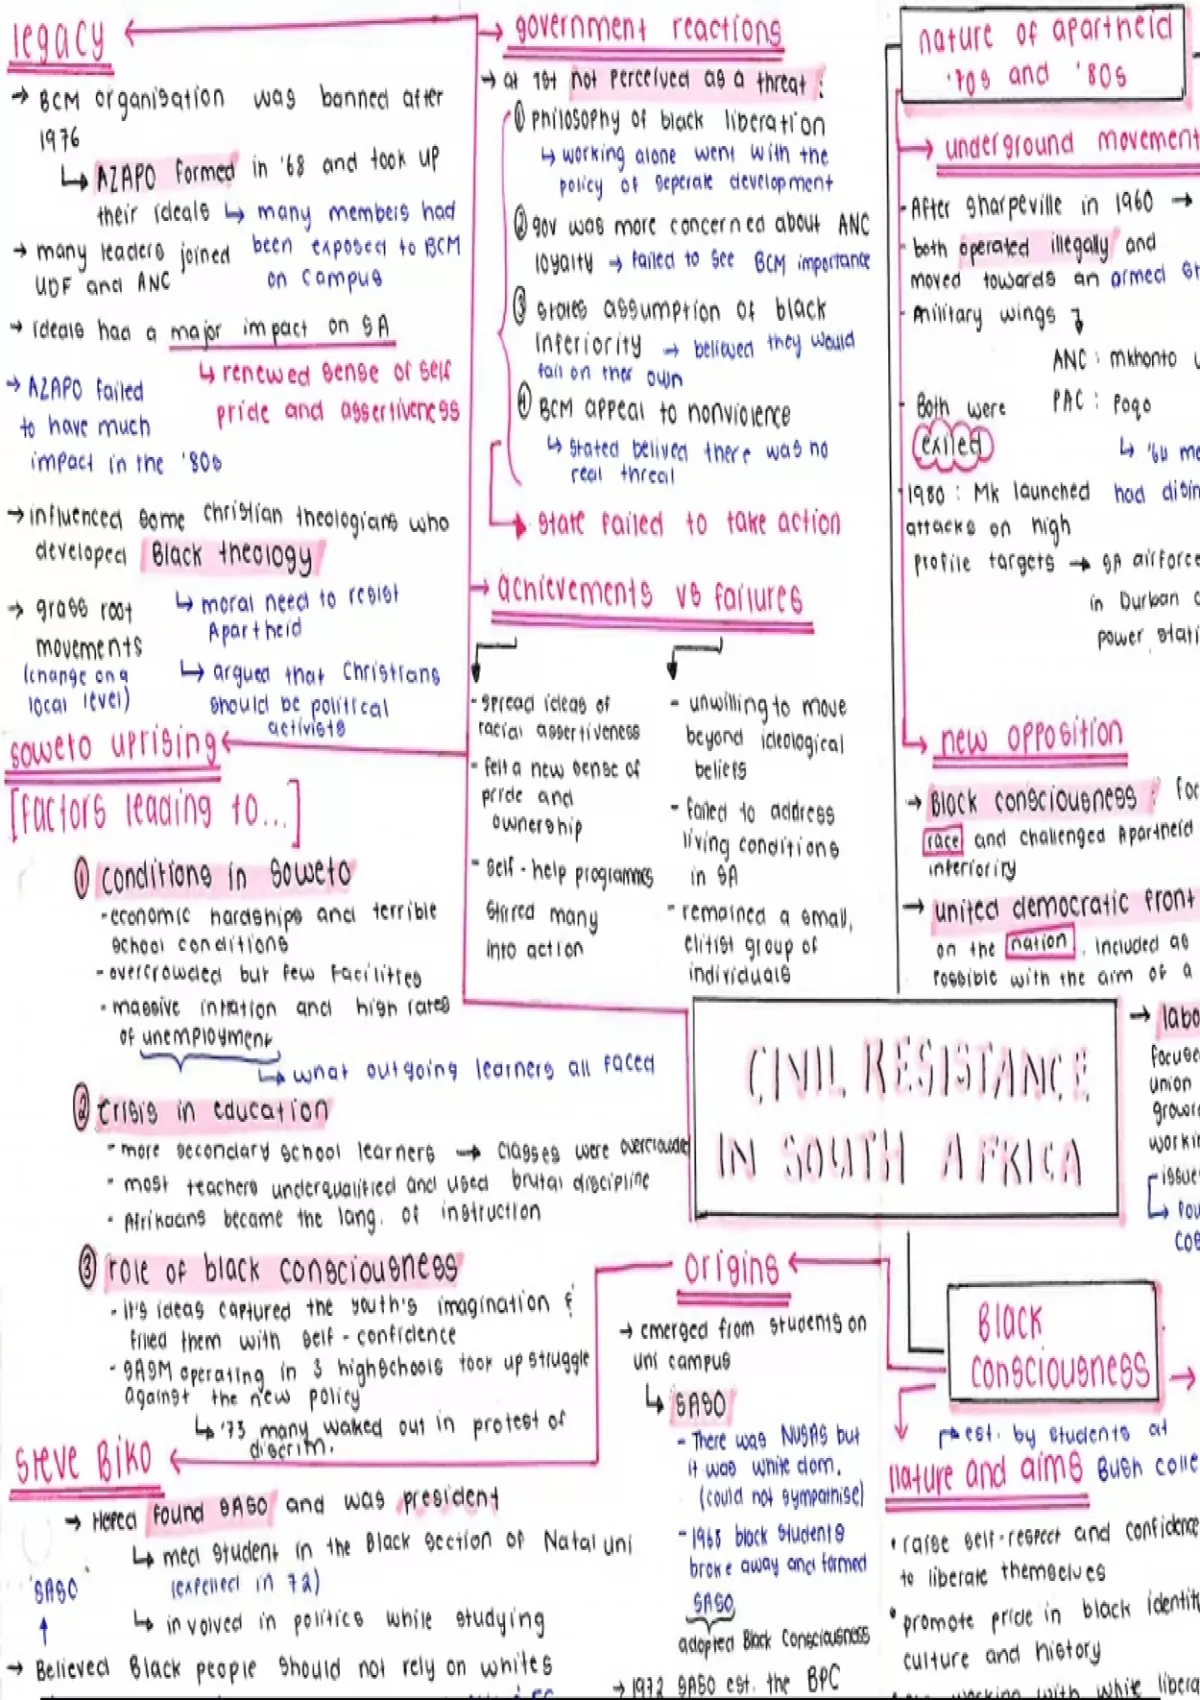 legacy
→ BCM organisation was banned after
1976
↳ AZAPO formed in '68 and took up
their ideals ↳ many members had
been exposed to BCM
on campus
→ many leaders joined
UDF and ANC
→ ideals had a major impact on SA
↳ renewed sense of self
pride and assertiveness
→ AZAPO failed
to have much
impact in the '80s
→ influenced some christian theologians who
developed Black theology
↳ moral need to resist
Apartheid
↳ argued that Christians
should be political
activists
→ grass root
movements
(change on a
local level)
soweto uprising
[factors leading to...]
① conditions in Soweto
- economic hardships and terrible
school conditions
- overcrowded but few facilities
- massive inflation and high rates
of unemployment
↳ what outgoing learners all faced
② crisis in education
- more secondary school learners → classes were overcrowded
- most teachers underqualified and used brutal discipline
- Afrikaans became the lang. of instruction
③ role of black consciousness
- it's ideas captured the youth's imagination &
filled them with self-confidence
- SASM operating in 3 highschools took up struggle
against the new policy
↳ '73 many walked out in protest of
discrim.
steve Biko
→ Helped found SASO and was president
↳ med student in the Black section of Natal uni
(expelled in 72)
↳ involved in politics while studying
'SASO'
→ Believed Black people should not rely on whites
→ government reactions
→ at 1st not perceived as a threat:
① philosophy of black liberation
↳ working alone went with the
policy of seperate development
② gov was more concerned about ANC
loyalty → failed to see BCM importance
③ states assumption of black
inferiority → believed they would
fail on ther own
④ BCM appeal to nonviolence
↳ stated belived there was no
real threat
→ state failed to take action
→ achievements vs failures
- spread ideas of
racial assertiveness
- felt a new sense of
pride and
ownership
- self-help programmes
stirred many
into action
- unwilling to move
beyond ideological
beliefs
- failed to address
living conditions
in SA
- remained a small,
elitist group of
individuals
CIVIL RESISTANCE
IN SOUTH AFRICA
origins
→ emerged from students on
uni campus
↳ SASO
- There was NUSAS but
it was white dom.
(could not sympathise)
- 1968 black students
broke away and formed
SASO
adopted Black Consciousness
→ 1972 SASO est. the BPC
nature of apartheid
'70s and '80s
→ underground movement
- After sharpeville in 1960 →
- both operated illegally and
moved towards an armed
- military wings
ANC: mkhonto
PAC: Poqo
- Both were
exiled
1980: MK launched
attacks on high
profile targets → SA airforce
in Durban
power
→ new opposition
→ Black consciousness:
race and challenged Apartheid
inferiority
→ united democratic front
on the nation. included as
possible with the aim of a
→
union
Black
consciousness →
→ est. by students at
Bush
nature and aims
• raise self-respect and confidence
to liberate themselves
• promote pride in black
culture and history
working with white